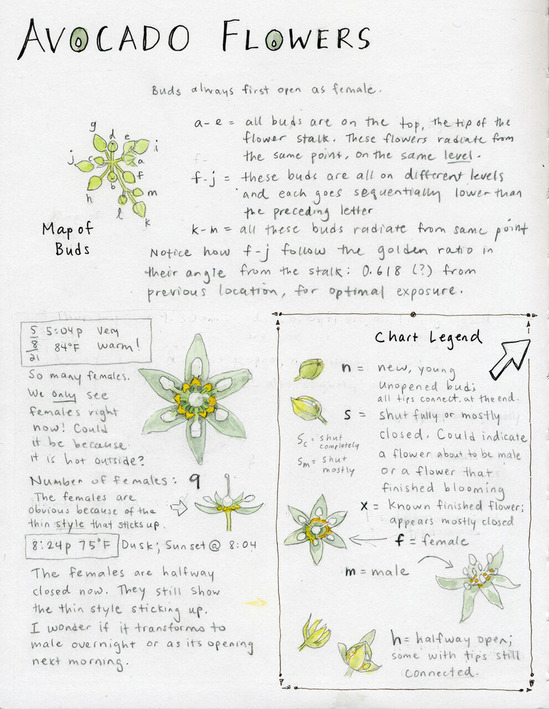 AVOCADO FLOWERS
Buds always first open as female.
a-e = all buds are on the top, the tip of the
flower stalk. These flowers radiate from
the same point, on the same level.
f-j = these buds are all on different levels
and each goes sequentially lower than
the preceding letter
k-m = all these buds radiate from same point
Notice how f-j follow the golden ratio in
their angle from the stalk: 0.618 (?) from
previous location, for optimal exposure.
g
d
e
i
j
c
a
f
b
h
m
l
k
Map of
Buds
5/8/21 5:04p Very
84°F warm!
So many females.
We only see
females right
now! Could
it be because
it is hot outside?
Number of females: 9
The females are
obvious because of the
thin style that sticks up.
8:24p 75°F Dusk; Sunset @ 8:04
The females are halfway
closed now. They still show
the thin style sticking up.
I wonder if it transforms to
male overnight or as its opening
next morning.
Chart Legend
n = new, young
unopened bud;
all tips connect at the end.
s = shut fully or mostly
closed. Could indicate
a flower about to be male
or a flower that
finished blooming
Sc = shut
completely
Sm = shut
mostly
x = Known finished flower;
appears mostly closed
f = female
m = male
h = halfway open;
some with tips still
connected.